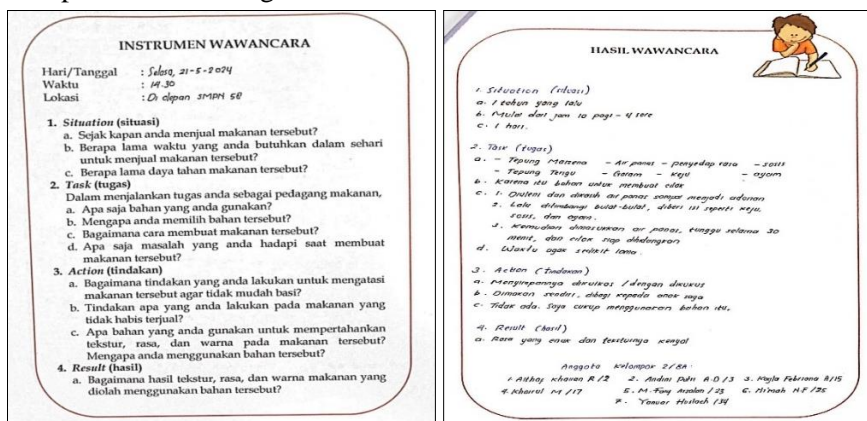 INSTRUMEN WAWANCARA
Hari/Tanggal : Selasa, 21-5-2024
Waktu : 14.30
Lokasi : Di depan SMPN 58
1. Situation (situasi)
a. Sejak kapan anda menjual makanan tersebut?
b. Berapa lama waktu yang anda butuhkan dalam sehari
untuk menjual makanan tersebut?
c. Berapa lama daya tahan makanan tersebut?
2. Task (tugas)
Dalam menjalankan tugas anda sebagai pedagang makanan,
a. Apa saja bahan yang anda gunakan?
b. Mengapa anda memilih bahan tersebut?
c. Bagaimana cara membuat makanan tersebut?
d. Apa saja masalah yang anda hadapi saat membuat
makanan tersebut?
3. Action (tindakan)
a. Bagaimana tindakan yang anda lakukan untuk mengatasi
makanan tersebut agar tidak mudah basi?
b. Tindakan apa yang anda lakukan pada makanan yang
tidak habis terjual?
c. Apa bahan yang anda gunakan untuk mempertahankan
tekstur, rasa, dan warna pada makanan tersebut?
Mengapa anda menggunakan bahan tersebut?
4. Result (hasil)
a. Bagaimana hasil tekstur, rasa, dan warna makanan yang
diolah menggunakan bahan tersebut?
HASIL WAWANCARA
1. Situation (situasi)
a. 1 tahun yang lalu
b. Mulai dari jam 10 pagi - 4 sore
c. 1 hari.
2. Task (tugas)
a. - Tepung - Air panas - penyedap rasa - sosis
- Tepung - Garam - Keju - ayam
b. Karena itu bahan untuk membuat cilok
c. 1. Diuleni dan dikasih air panas sampai menjadi adonan
2. Lalu bulat-bulat, diberi isi seperti keju,
sosis, dan ayam.
3. Kemudian dimasukkan air panas, tunggu selama 30
menit, dan cilok siap
d. Waktu agak sedikit lama.
3. Action (tindakan)
a. Menyimpannya dikulkas / dengan dikukus
b. Dimakan sendiri, dibagi kepada anak saya
c. Tidak ada. Saya cukup menggunakan bahan itu.
4. Result (hasil)
a. Rasa yang enak dan teksturnya kenyal
Anggota Kelompok 2/8A
1. R /2 2. Andini Putri A.D /3 3. Febriana /15
4. Khoirul M /17 5. M. /23 6. Ni'mah N.F /25
7. /34